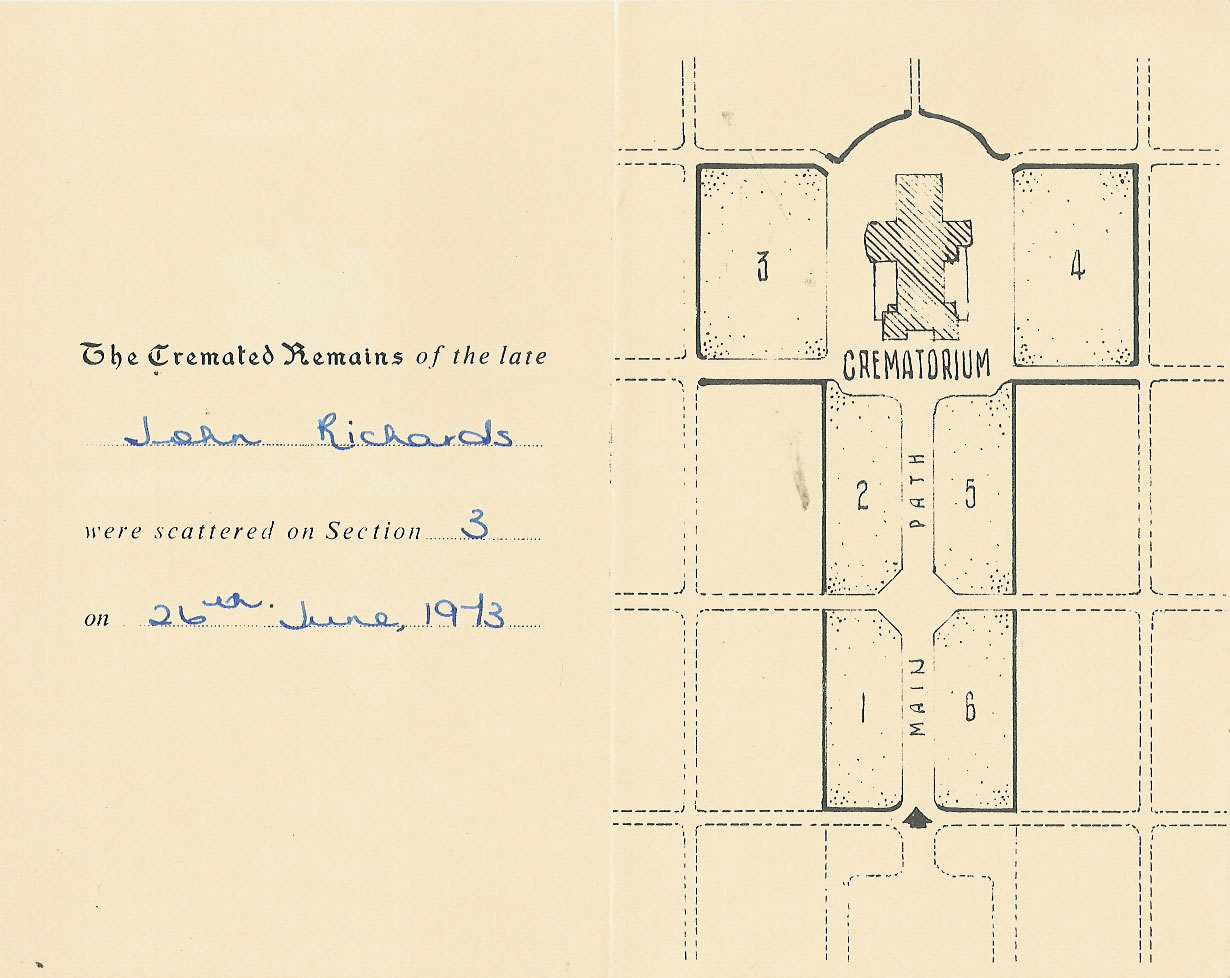 The Cremated Remains of the late
John Richards
were scattered on Section 3
on 26th. June, 1973
3
4
CREMATORIUM
2
PATH
5
1
MAIN
6